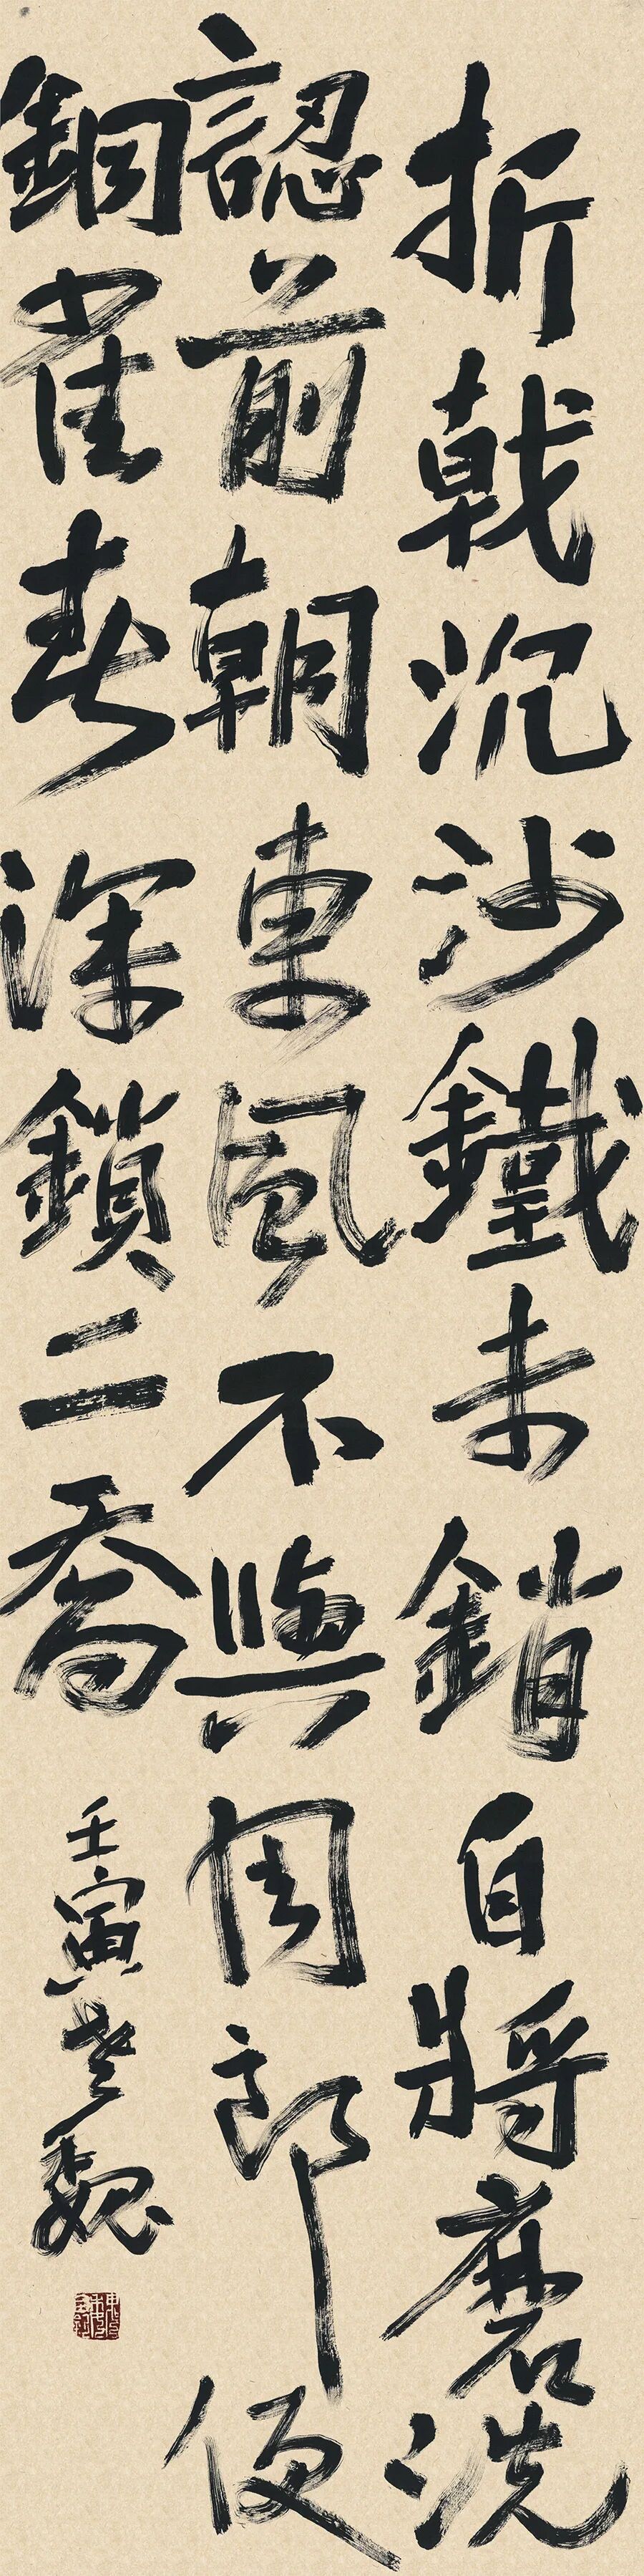 折戟沉沙鐵未銷自將磨洗
認前朝東風不與周郎便
銅雀春深鎖二喬
壬寅老魏